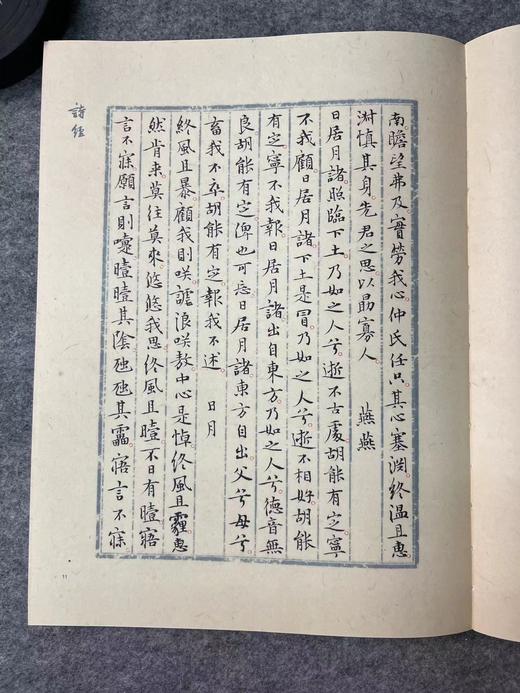 詩經
南瞻望弗及實勞我心仲氏任只其心塞淵終温且惠
淑慎其身先君之思以勗寡人 燕燕
日居月諸照臨下土乃如之人兮逝不古處胡能有定寧
不我顧日居月諸下土是冒乃如之人兮逝不相好胡能
有定寧不我報日居月諸出自東方乃如之人兮德音無
良胡能有定俾也可忘日居月諸東方自出父兮母兮
畜我不卒胡能有定報我不述 日月
終風且暴顧我則咲謔浪咲敖中心是悼終風且霾惠
然肯來莫往莫來悠悠我思終風且曀不日有曀寤
言不寐願言則嚏曀曀其陰虺虺其靁寤言不寐
11